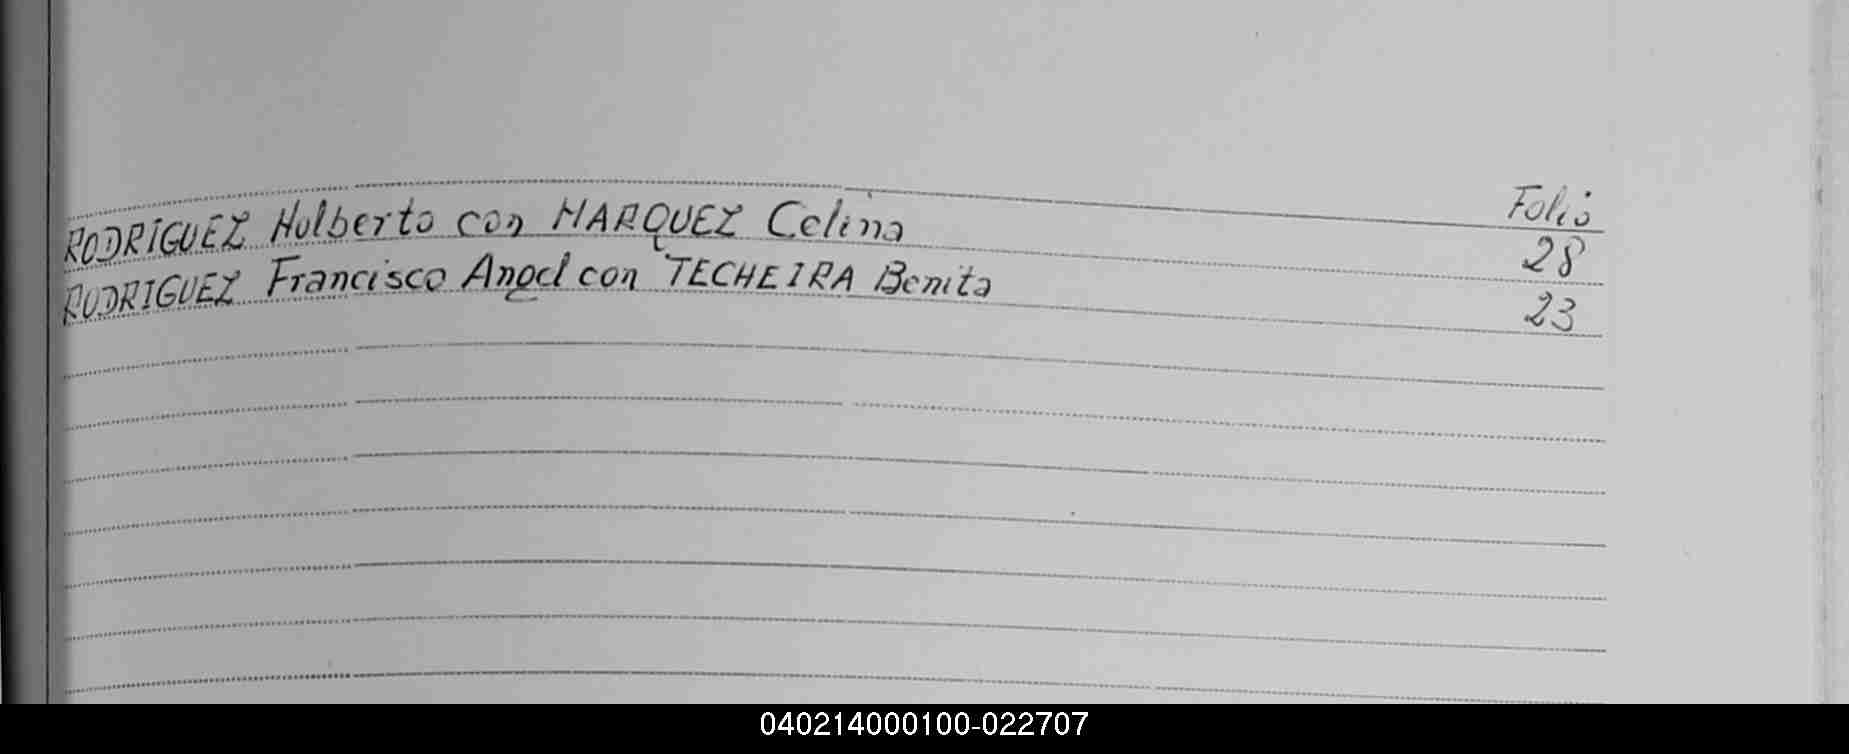 Folio
RODRIGUEZ Hulberto con MARQUEZ Celina 28
RODRIGUEZ Francisco Angel con TECHEIRA Benita 23
040214000100-022707